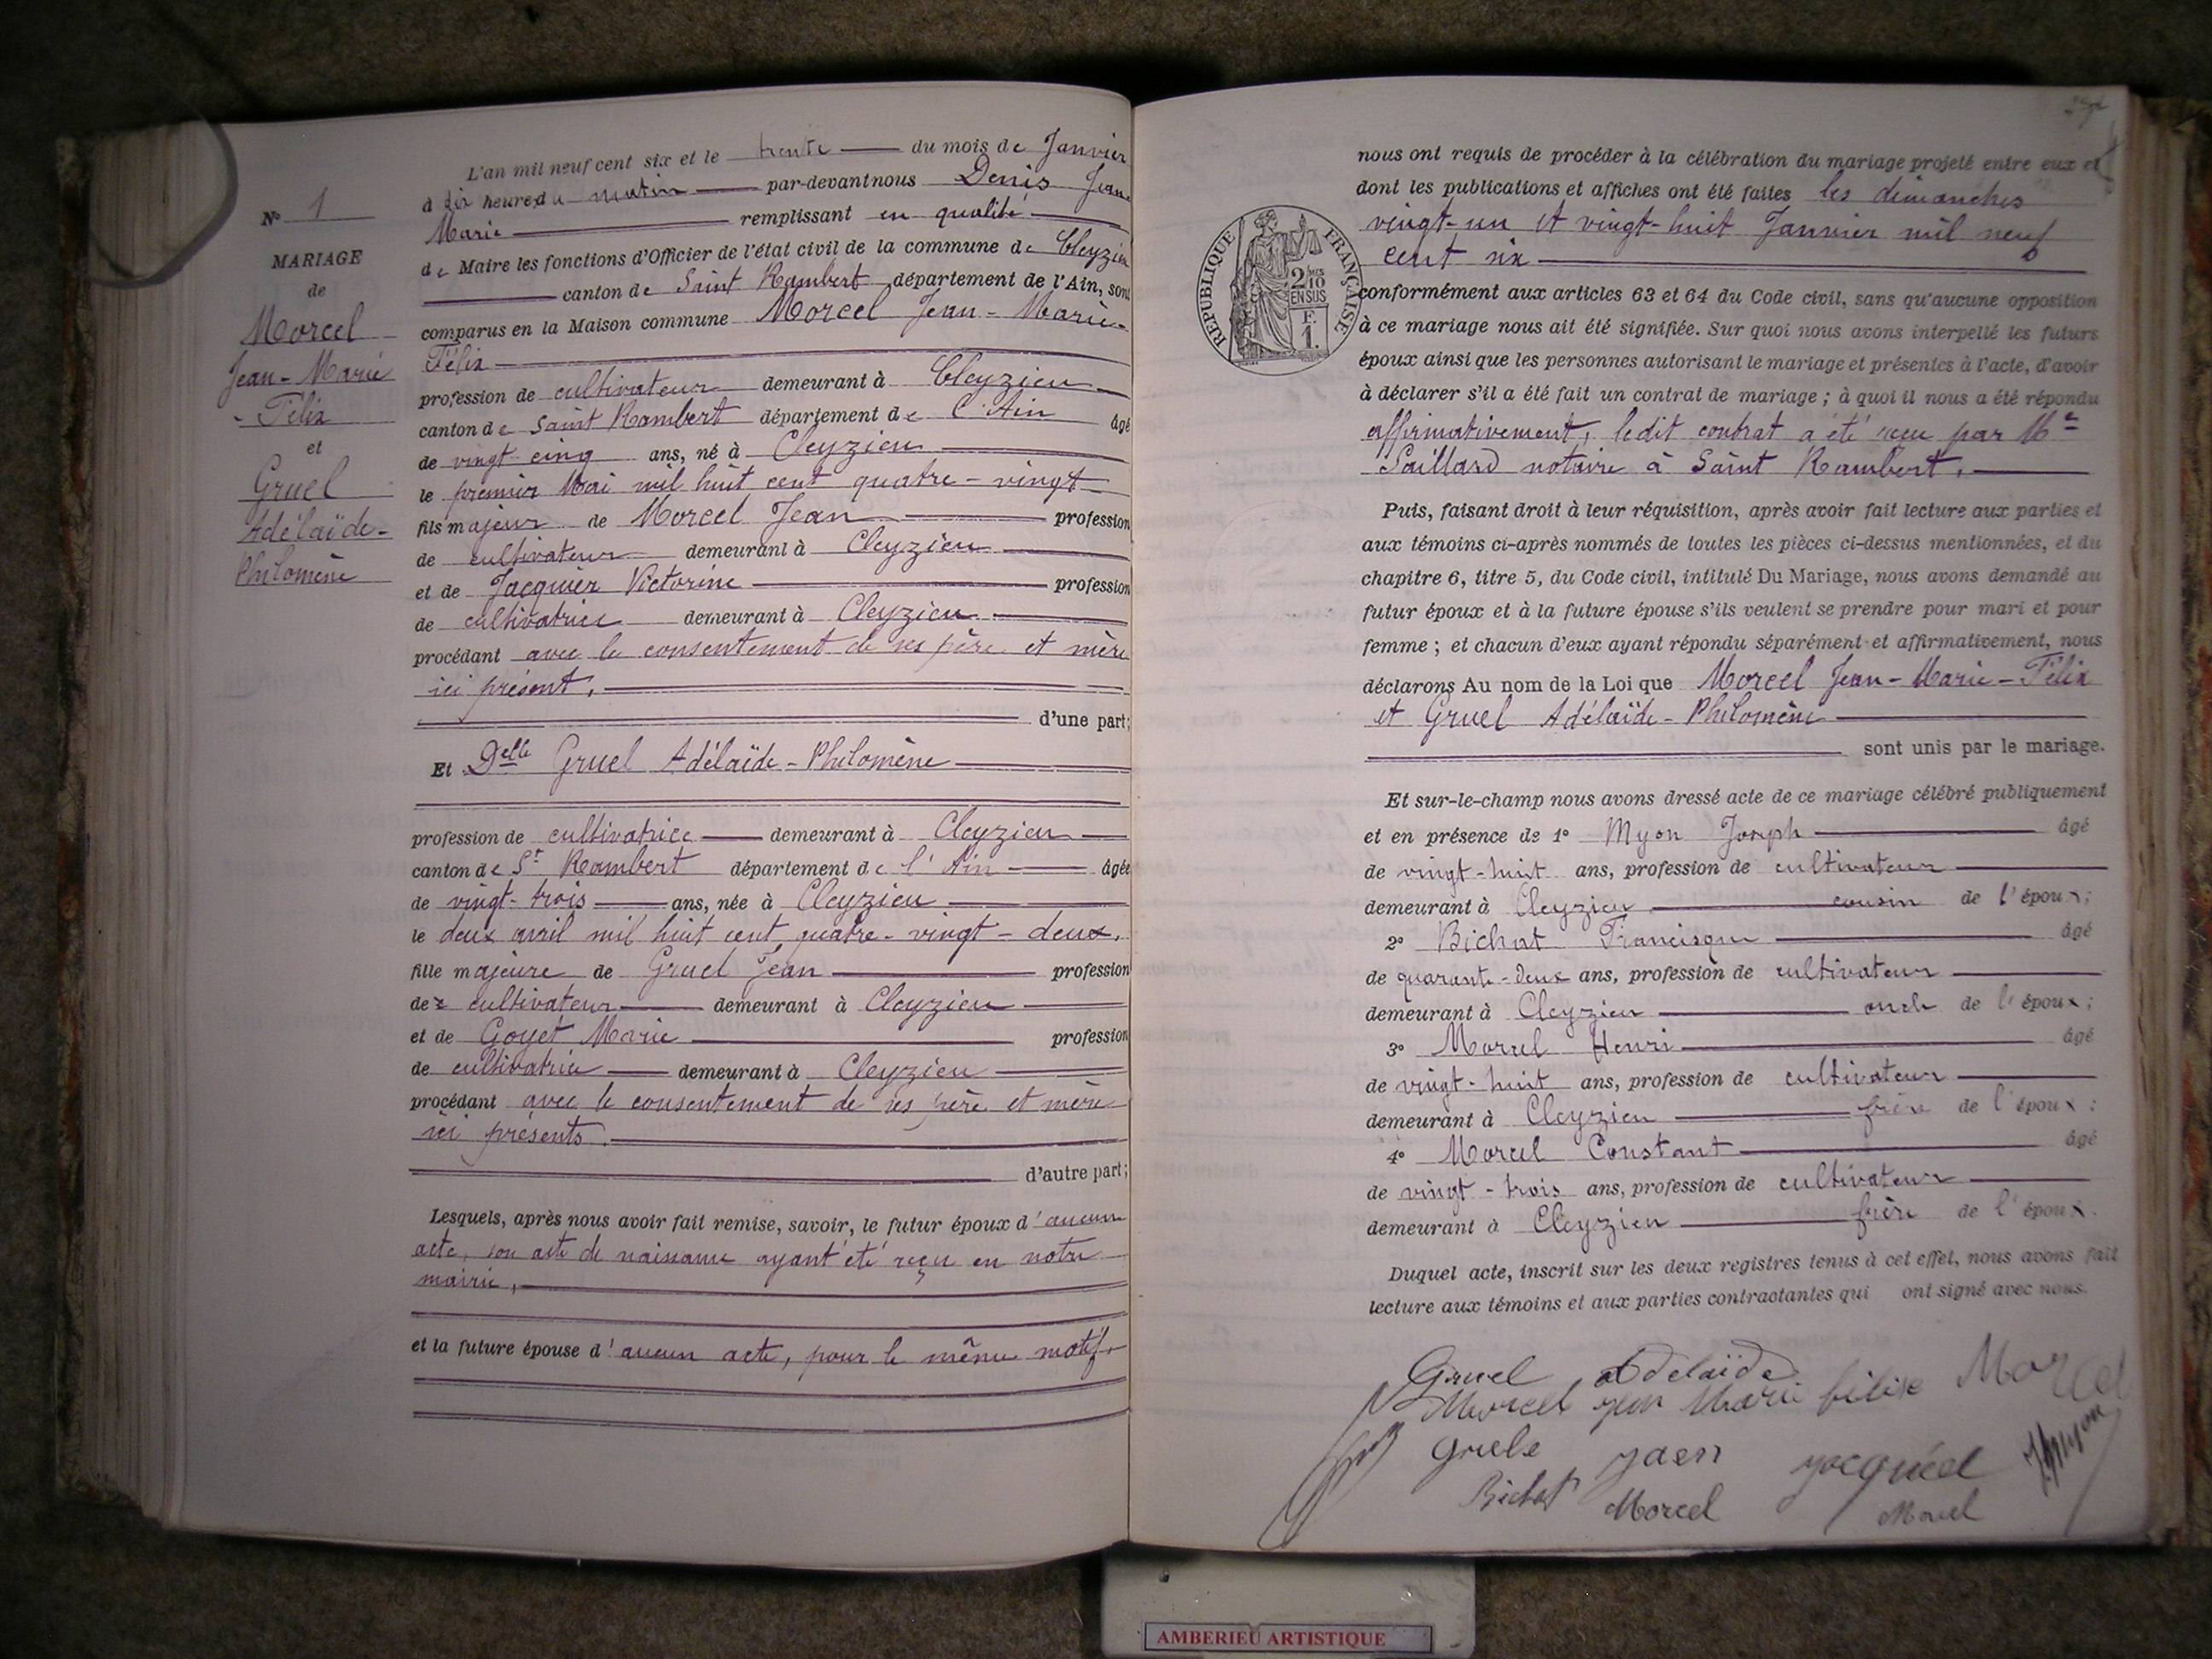 N° 1
MARIAGE
de
Morcel
Jean-Marie
-Félix
et
Gruel
Adélaïde-
Philomène
L'an mil neuf cent six et le trente du mois de Janvier
à dix heures du matin par-devant nous Denis Jean
Marie remplissant en qualité
de Maire les fonctions d'Officier de l'état civil de la commune de Cleyzieu
canton de Saint Rambert département de l'Ain, sont
comparus en la Maison commune Morcel Jean-Marie-
Félix
profession de cultivateur demeurant à Cleyzieu
canton de Saint Rambert département de l'Ain âgé
de vingt cinq ans, né à Cleyzieu
le premier Mai mil huit cent quatre-vingt
fils majeur de Morcel Jean profession
de cultivateur demeurant à Cleyzieu
et de Jacquier Victorine profession
de cultivatrice demeurant à Cleyzieu
procédant avec le consentement de ses père et mère
ici présent.
d'une part;
Et Delle Gruel Adélaïde-Philomène
profession de cultivatrice demeurant à Cleyzieu
canton de St Rambert département de l'Ain âgée
de vingt-trois ans, née à Cleyzieu
le deux avril mil huit cent quatre-vingt-deux.
fille majeure de Gruel Jean profession
de cultivateur demeurant à Cleyzieu
et de Goyet Marie profession
de cultivatrice demeurant à Cleyzieu
procédant avec le consentement de ses père et mère
ici présents.
d'autre part;
Lesquels, après nous avoir fait remise, savoir, le futur époux d'aucun
acte, son acte de naissance ayant été reçu en notre
mairie,
et la future épouse d'aucun acte, pour le même motif.
nous ont requis de procéder à la célébration du mariage projeté entre eux et
dont les publications et affiches ont été faites les dimanches
vingt-un et vingt-huit Janvier mil neuf
cent six
RÉPUBLIQUE FRANÇAISE
2 MES
10
EN SUS
F.
1.
conformément aux articles 63 et 64 du Code civil, sans qu'aucune opposition
à ce mariage nous ait été signifiée. Sur quoi nous avons interpellé les futurs
époux ainsi que les personnes autorisant le mariage et présentes à l'acte, d'avoir
à déclarer s'il a été fait un contrat de mariage; à quoi il nous a été répondu
affirmativement, ledit contrat a été reçu par Me
Saillard notaire à Saint Rambert.
Puis, faisant droit à leur réquisition, après avoir fait lecture aux parties et
aux témoins ci-après nommés de toutes les pièces ci-dessus mentionnées, et du
chapitre 6, titre 5, du Code civil, intitulé Du Mariage, nous avons demandé au
futur époux et à la future épouse s'ils veulent se prendre pour mari et pour
femme; et chacun d'eux ayant répondu séparément et affirmativement, nous
déclarons Au nom de la Loi que Morcel Jean-Marie-Félix
et Gruel Adélaïde-Philomène
sont unis par le mariage.
Et sur-le-champ nous avons dressé acte de ce mariage célébré publiquement
et en présence de 1° Myon Joseph âgé
de vingt-huit ans, profession de cultivateur
demeurant à Cleyzieu cousin de l'époux;
2° Bichat Francisque âgé
de quarante-deux ans, profession de cultivateur
demeurant à Cleyzieu oncle de l'époux;
3° Morcel Henri âgé
de vingt-huit ans, profession de cultivateur
demeurant à Cleyzieu frère de l'époux;
4° Morcel Constant âgé
de vingt-trois ans, profession de cultivateur
demeurant à Cleyzieu frère de l'époux.
Duquel acte, inscrit sur les deux registres tenus à cet effet, nous avons fait
lecture aux témoins et aux parties contractantes qui ont signé avec nous.
Gruel adelaïde
Morcel jean Marie félise Morcel
Gruele jaen Jacquiel Myon
Bichat Morcel Morcel
AMBERIEU ARTISTIQUE